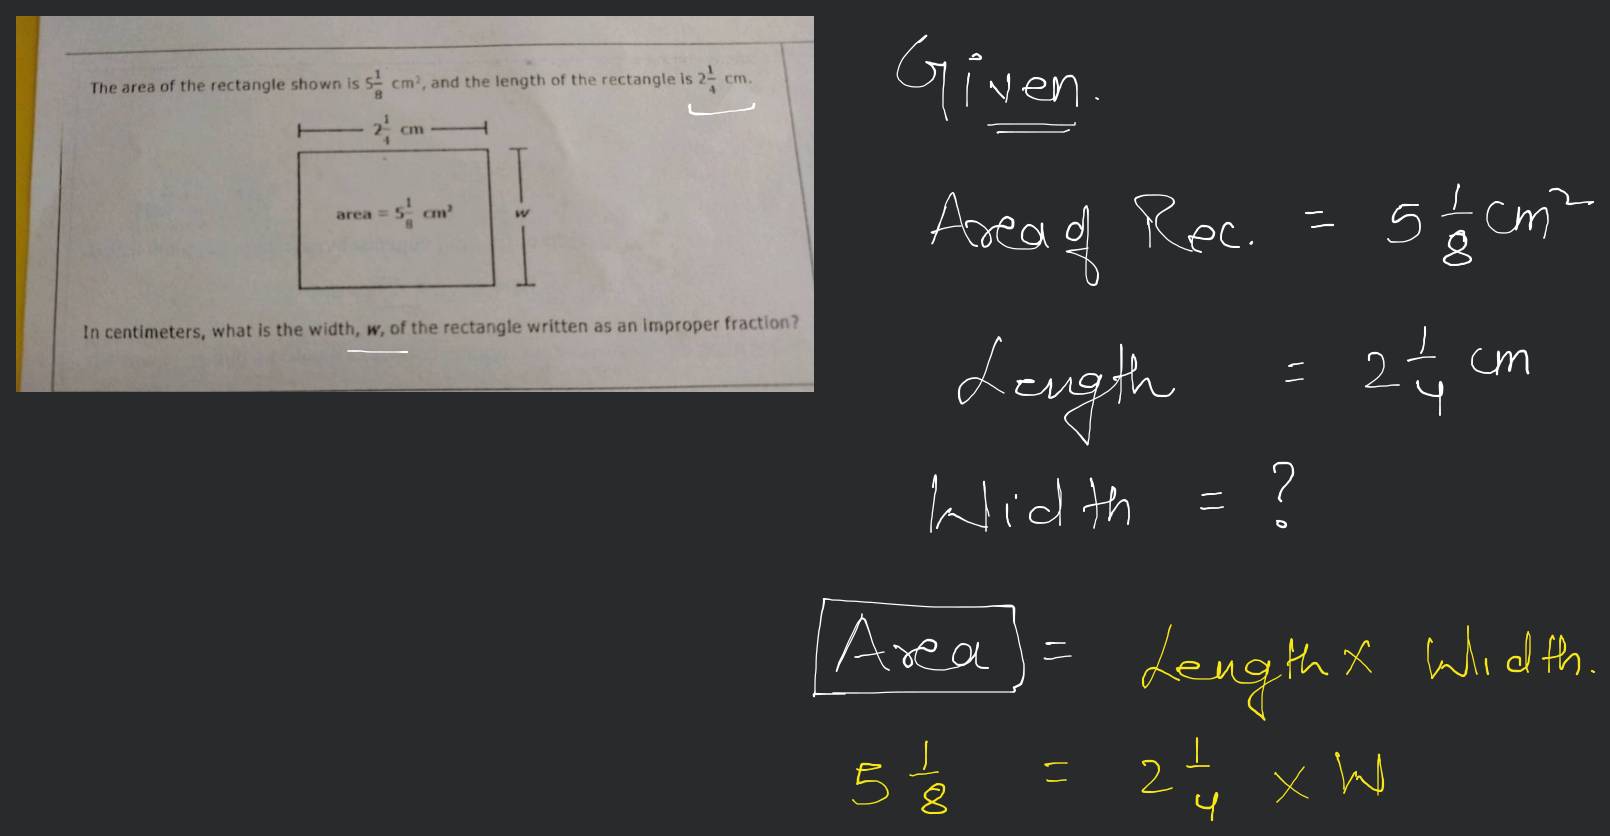 The area of the rectangle shown is 5 1/8 cm², and the length of the rectangle is 2 1/4 cm.
2 1/4 cm
area = 5 1/8 cm²
w
In centimeters, what is the width, w, of the rectangle written as an improper fraction?
Given.
Area of Rec. = 5 1/8 cm²
Length = 2 1/4 cm
Width = ?
Area = Length x Width.
5 1/8 = 2 1/4 x W